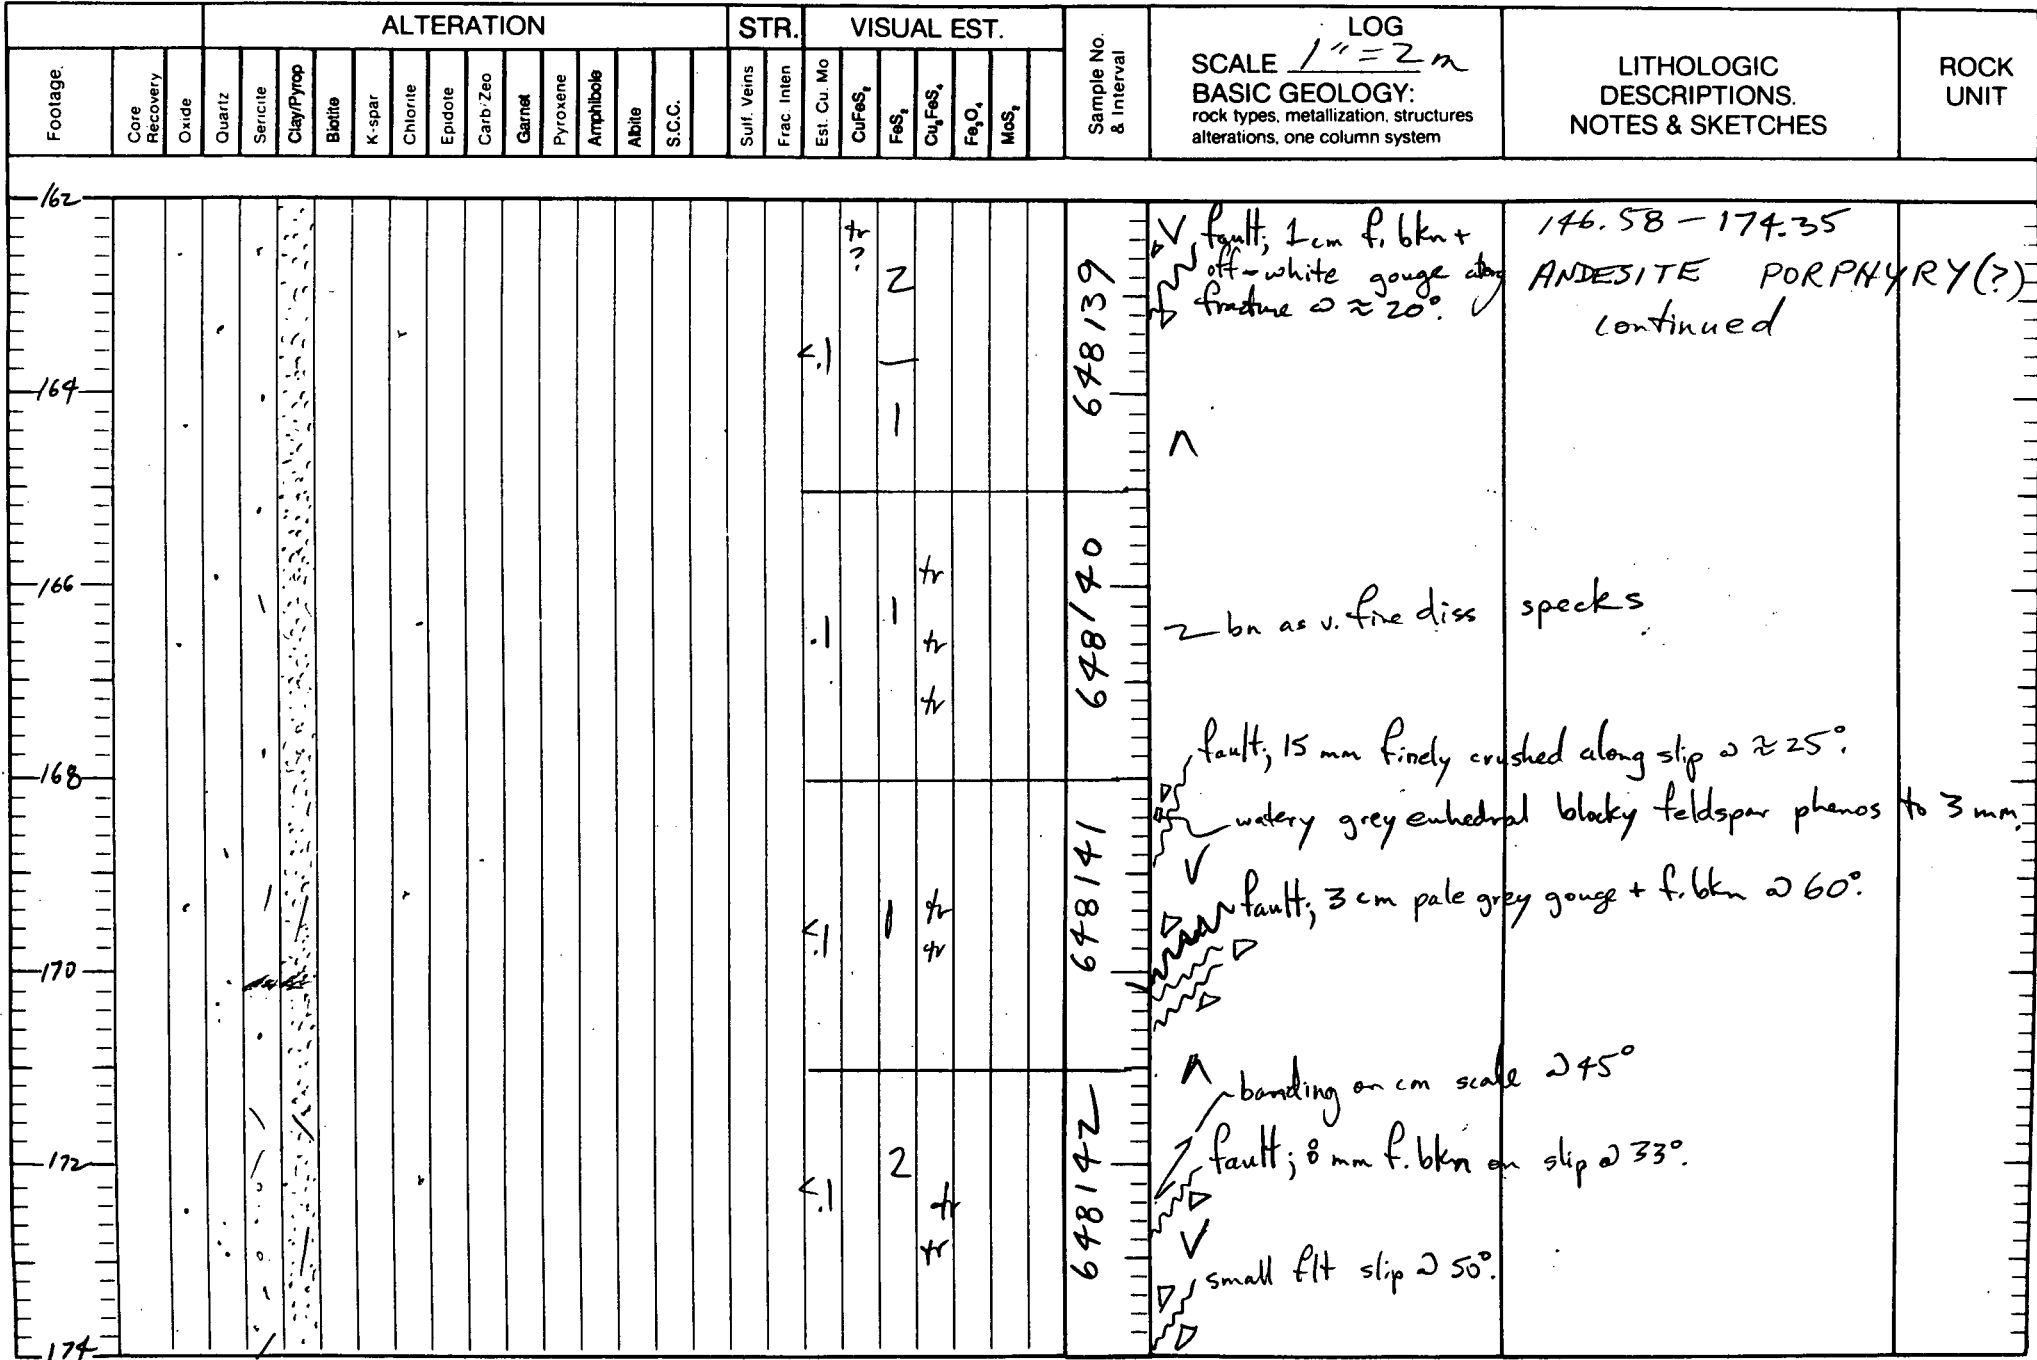 ALTERATION
STR.
VISUAL EST.
Footage.
Core Recovery
Oxide
Quartz
Sericite
Clay/Pyrop
Biotite
K-spar
Chlorite
Epidote
Carb/Zeo
Garnet
Pyroxene
Amphibole
Albite
S.C.C.
Sulf. Veins
Frac. Inten
Est. Cu. Mo
CuFeS₂
FeS₂
Cu₅FeS₄
Fe₃O₄
MoS₂
Sample No. & Interval
LOG
SCALE 1" = 2 m
BASIC GEOLOGY:
rock types, metallization, structures
alterations, one column system
LITHOLOGIC
DESCRIPTIONS.
NOTES & SKETCHES
ROCK
UNIT
162
tr
?
2
648139
fault; 1 cm f. bkn +
off-white gouge along
fracture @ ≈ 20°.
146.58 - 174.35
ANDESITE PORPHYRY(?)
continued
<.1
164
1
648140
tr
166
1
.1
tr
tr
bn as v. fine diss specks
fault; 15 mm finely crushed along slip @ ≈ 25°.
168
648141
watery grey euhedral blocky feldspar phenos to 3 mm.
fault; 3 cm pale grey gouge + f. bkn @ 60°.
1
tr
<.1
tr
170
648142
banding on cm scale @ 45°
172
2
fault; 8 mm f. bkn on slip @ 33°.
<.1
tr
tr
small flt slip @ 50°.
174